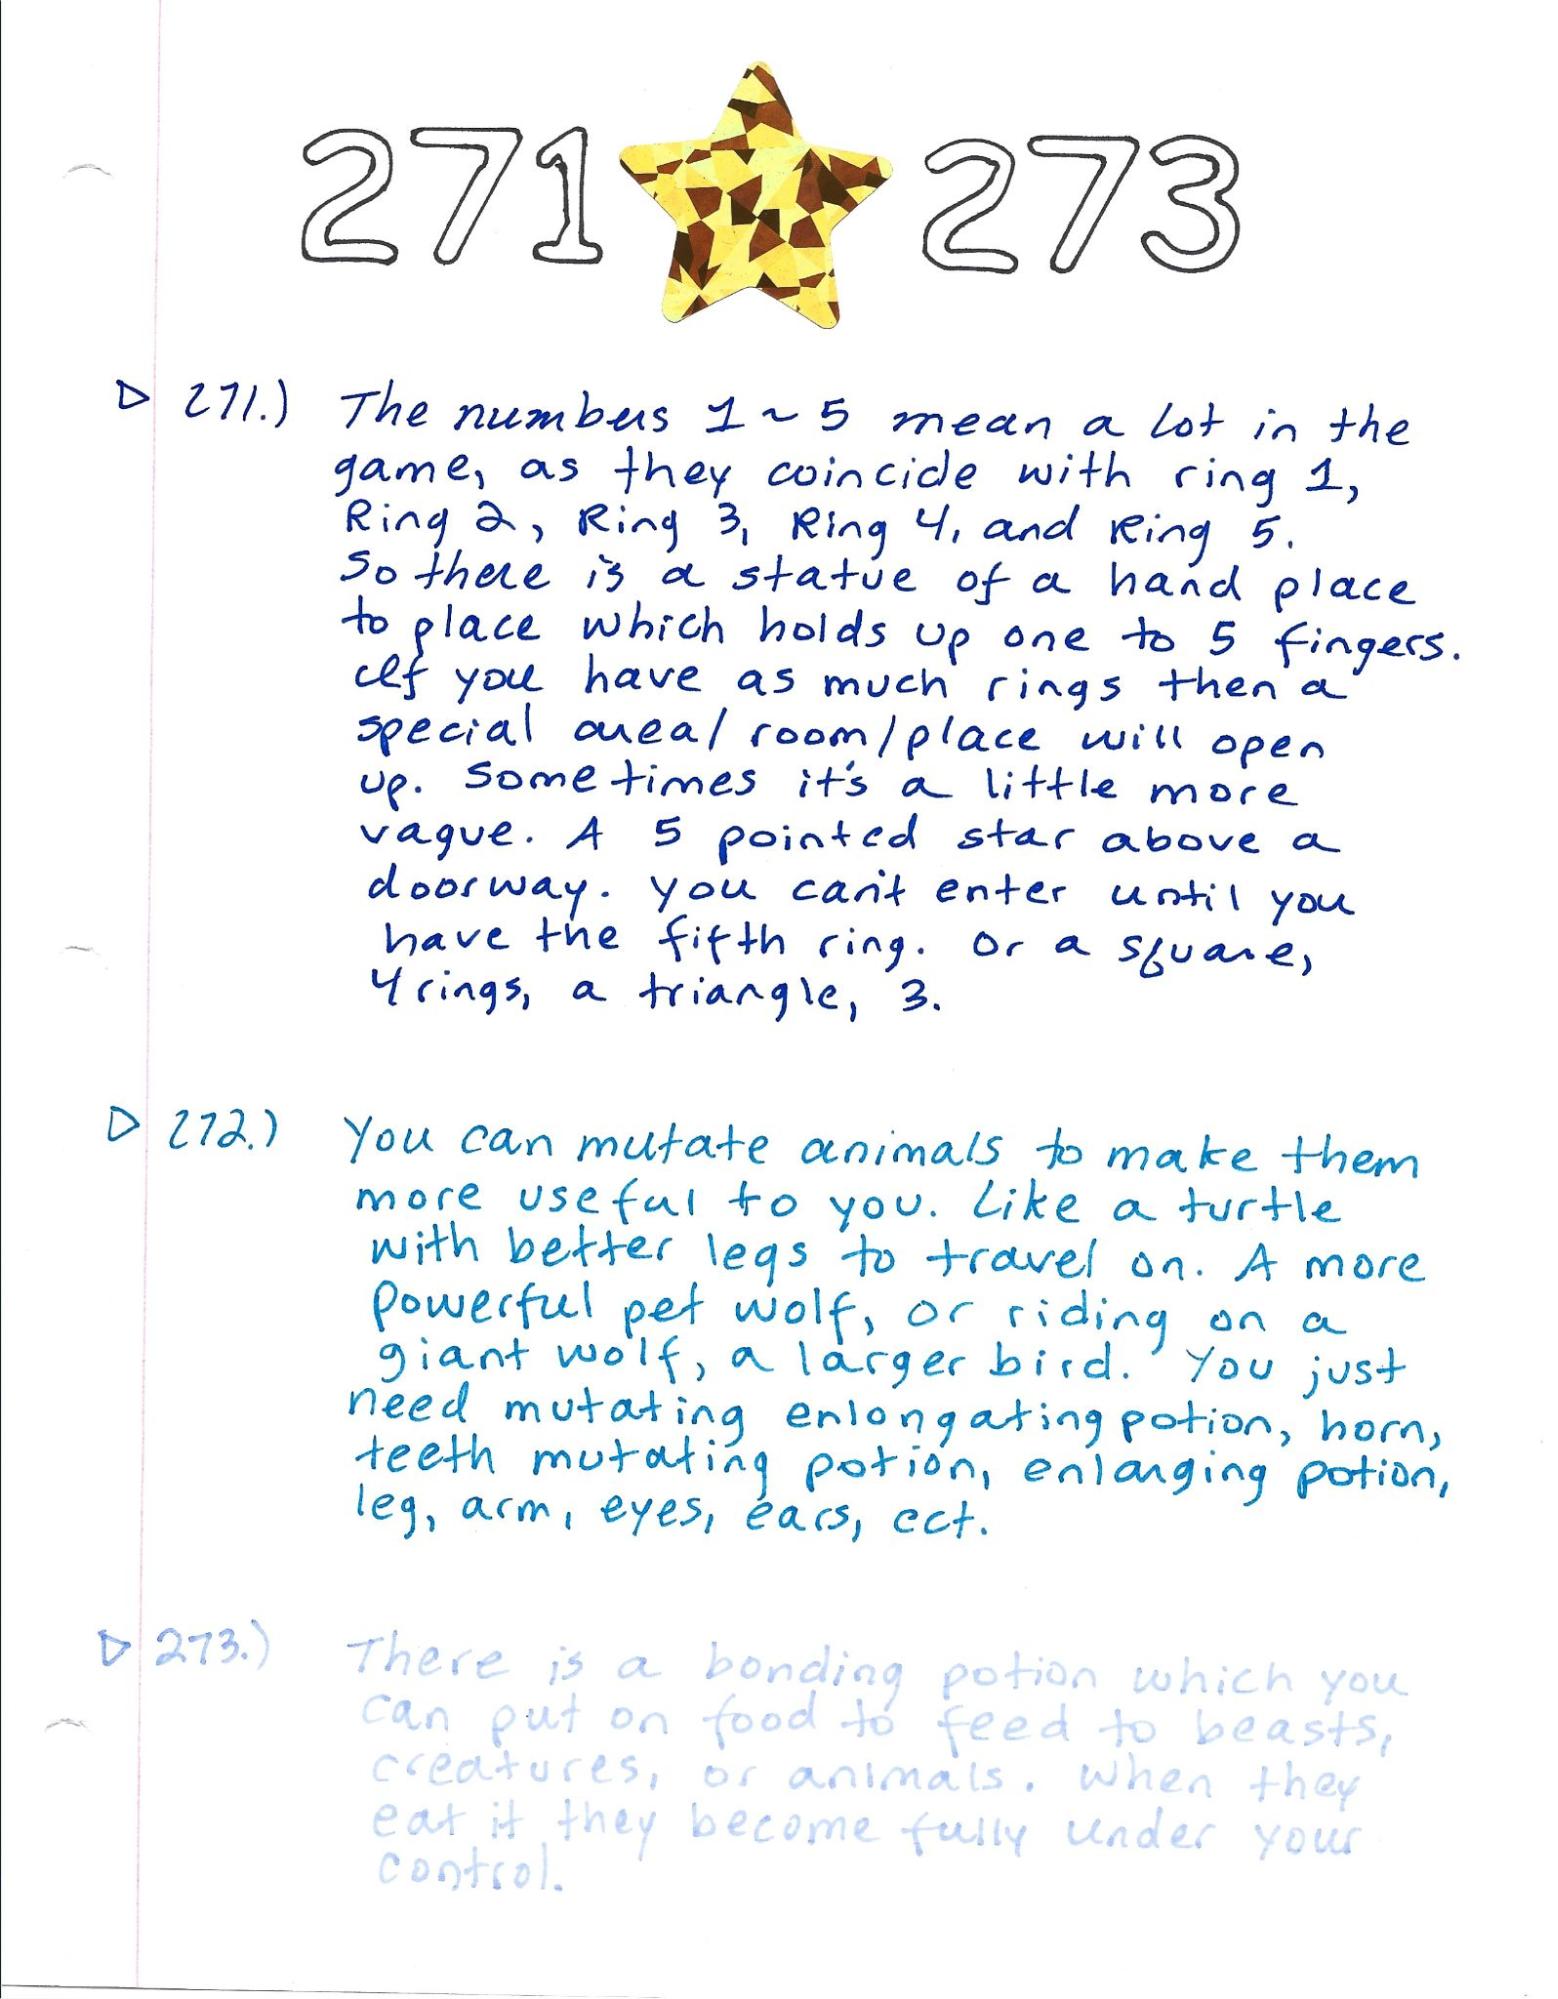 271 273
271.) The numbers 1~5 mean a lot in the
game, as they coincide with ring 1,
Ring 2, Ring 3, Ring 4, and Ring 5.
So there is a statue of a hand place
to place which holds up one to 5 fingers.
If you have as much rings then a
special area/room/place will open
up. Sometimes it's a little more
vague. A 5 pointed star above a
doorway. You can't enter until you
have the fifth ring. Or a square,
4 rings, a triangle, 3.
272.) You can mutate animals to make them
more useful to you. Like a turtle
with better legs to travel on. A more
powerful pet wolf, or riding on a
giant wolf, a larger bird. You just
need mutating enlongating potion, horn,
teeth mutating potion, enlarging potion,
leg, arm, eyes, ears, ect.
273.) There is a bonding potion which you
can put on food to feed to beasts,
creatures, or animals. When they
eat it they become fully under your
control.